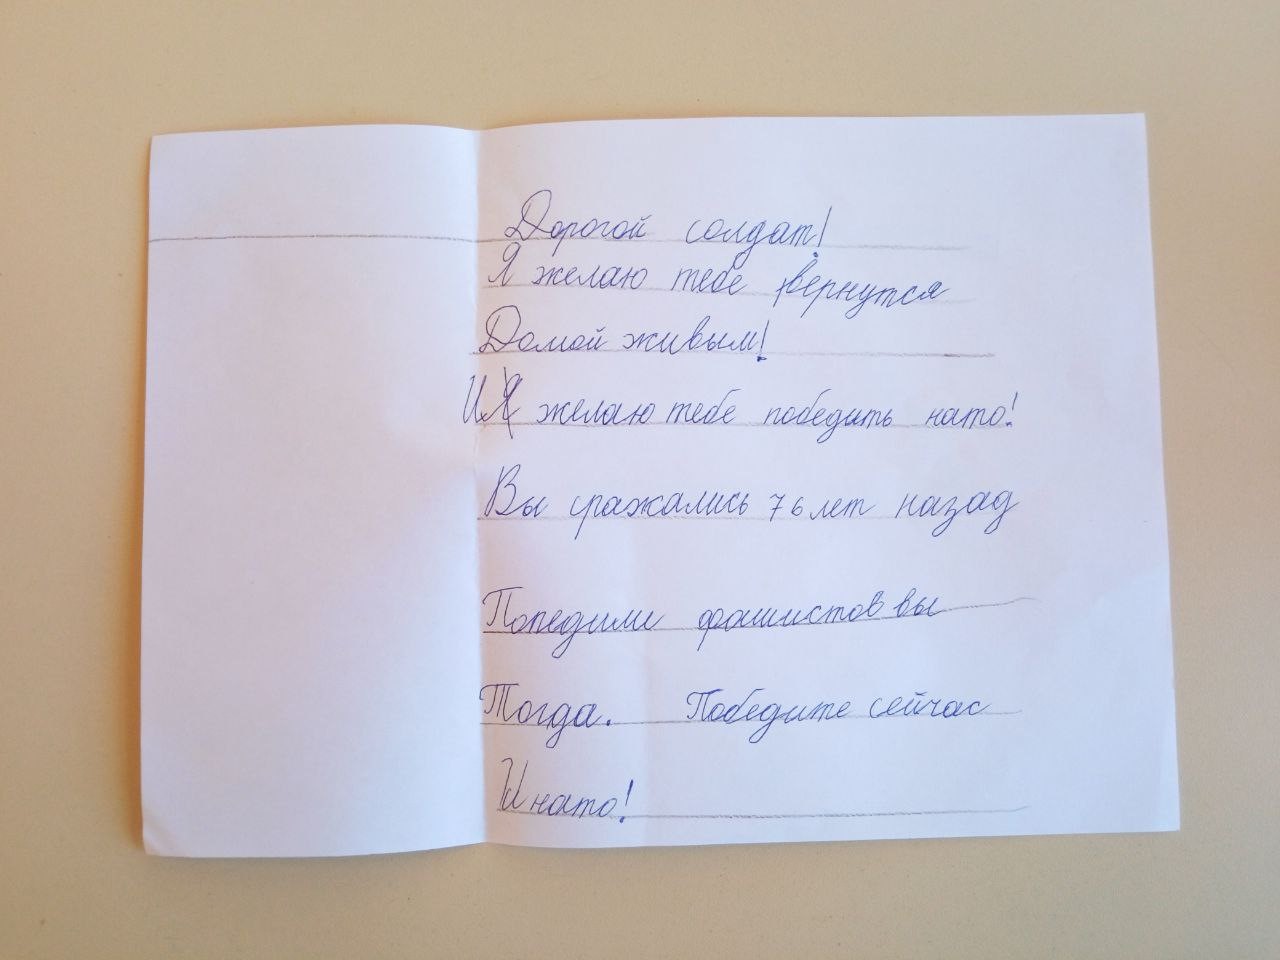 Дорогой солдат!
Я желаю тебе вернутся
Домой живым!
И желаю тебе победить нато!
Вы сражались 76 лет назад
Попедили фашистов вы
Тогда. Победите сейчас
И нато!